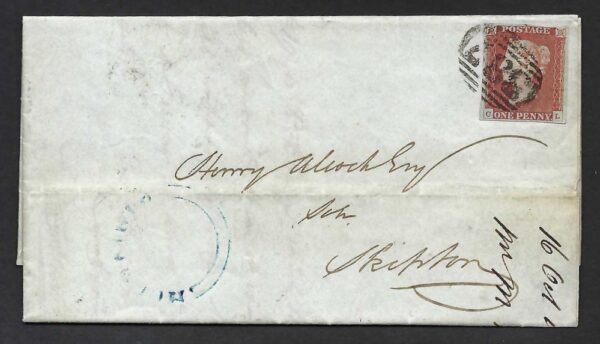 POSTAGE
ONE PENNY
C L
Henry Alcock Esq
Solr
Skipton
16 Oct